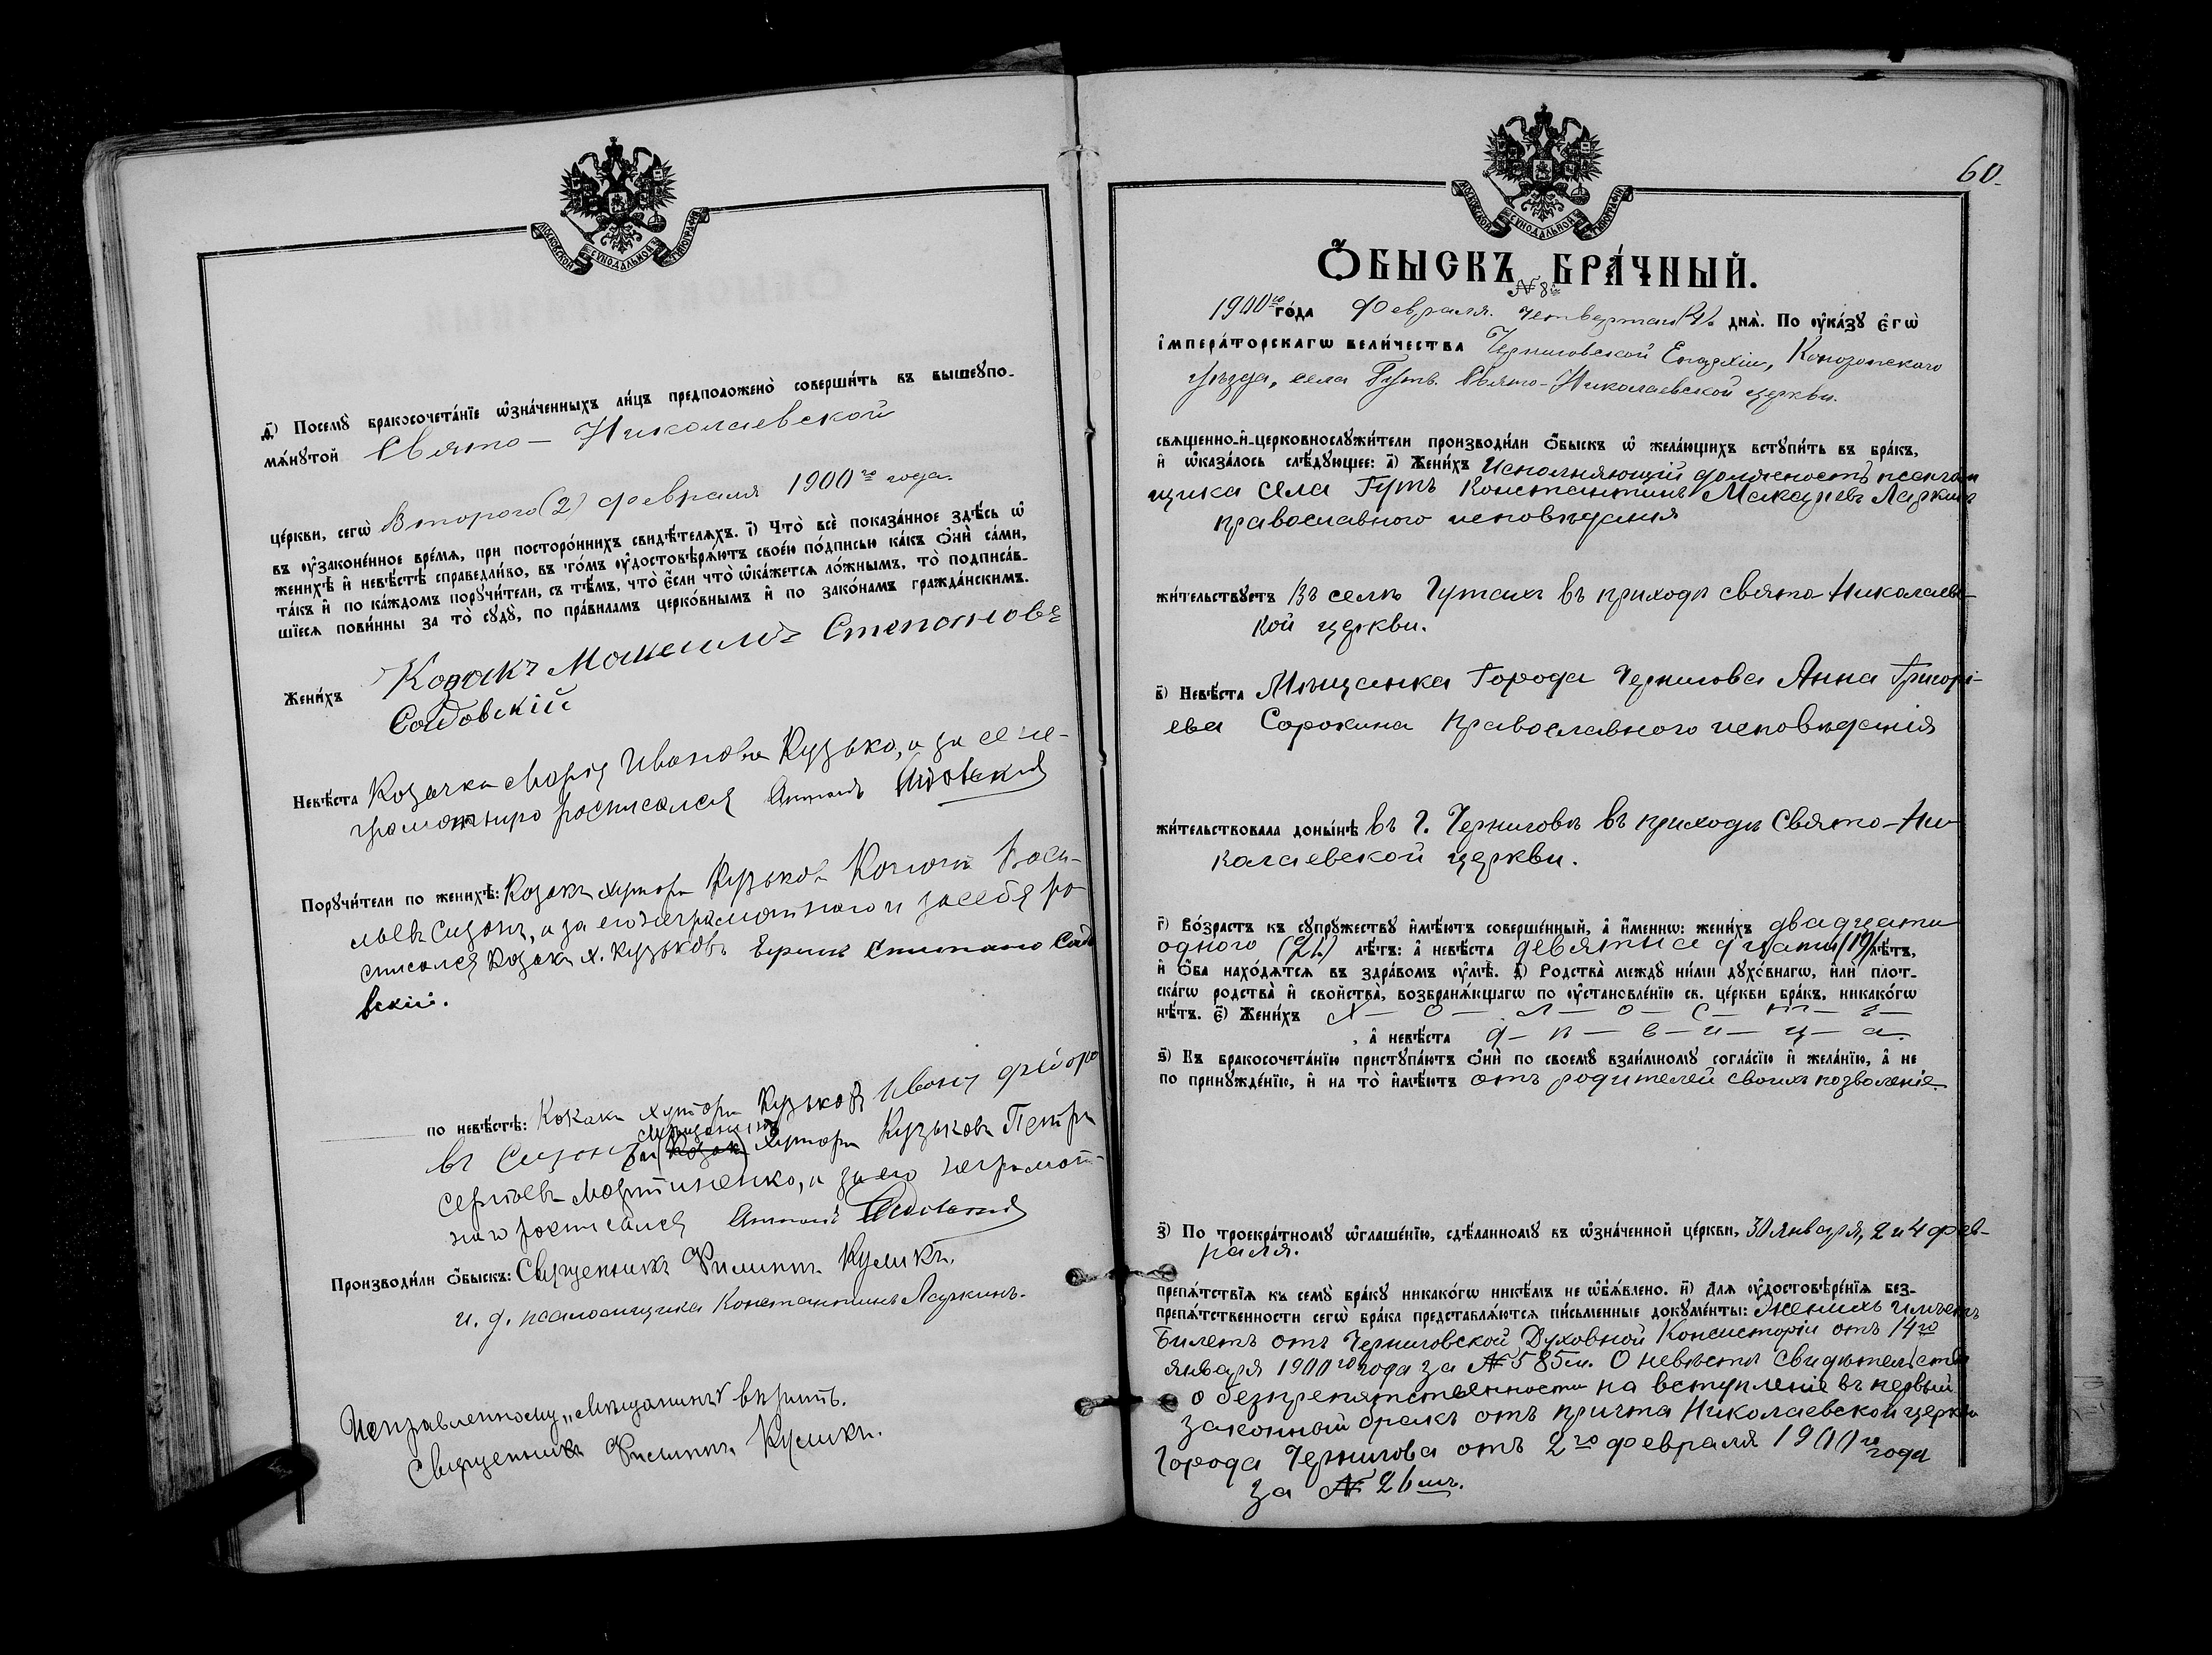 МОСКОВСКОЙ СѴНОДАЛЬНОЙ ТИПОГРАФІИ
д҃) Посемꙋ̀ бракосочета́нїе ѡ҆зна́ченныхъ ли́цъ предположено̀ соверши́ть въ вышеꙋпо-
мѧ́нꙋтой Свято-Николаевской
це́ркви, сегѡ̀ Второго (2) февраля 1900го года.
въ ᲂу҆законе́нное вре́мѧ, при посторо́ннихъ свидѣ́телѧхъ. і҃) Что̀ всѐ показа́нное здѣ́сь ѡ҆
женихѣ̀ и҆ невѣ́стѣ справедли́во, въ то́мъ ᲂу҆достовѣрѧ́ютъ свое́ю по́дписью ка́къ ѻ҆нѝ са́ми,
та́къ и҆ по ка́ждомъ порꙋчи́тели, съ тѣ́мъ, что̀ є҆́сли что̀ ѡ҆ка́жетсѧ ло́жнымъ, то̀ подписа́в-
шїесѧ пови́нны за то̀ сꙋдꙋ̀, по пра́виламъ церко́внымъ и҆ по зако́намъ гражда́нскимъ.
Жени́хъ Козакъ Максимъ Степановъ
Садовскій
Невѣ́ста Козачка Марія Иванова Кузько, а за се не-
грамотную росписался Антонъ Садовский
Порꙋчи́тели по женихѣ̀: Козакъ хутора Кузьковъ Васи-
льевъ Сизонъ, а за его неграмотнаго и за себя ро-
списался Козакъ х. Кузьковъ Садо
вский.
по невѣ́стѣ: Козакъ хутора Кузьковъ Иванъ Фёдоро
въ Сизонъ мѣщанинъ (Козакъ) хутора Кузьковъ Петръ
Сергѣевъ Мартиненко, а за его неграмот-
наго росписался Антонъ Садовский
Производи́ли ѻ҆́быскъ: Священникъ Филиппъ Куликъ.
и. д. псаломщика Константинъ Ларкинъ.
Исправленному „мѣщанинъ" вѣрить.
Священникъ Филиппъ Куликъ.
60.
МОСКОВСКОЙ СѴНОДАЛЬНОЙ ТИПОГРАФІИ
Ѻ҆БЫСКЪ БРА́ЧНЫЙ.
№ 8й
1900го го́да Февраля. четвертаго (4). днѧ̀. По ᲂу҆ка́зꙋ є҆гѡ̀
і҆мпера́торскагѡ вели́чества Черниговской Епархіи, Конотопскаго
уѣзда, села Гутъ Свято-Николаевской церкви.
свѧщенно-и҆-церковнослꙋжи́тели производи́ли ѻ҆́быскъ ѡ҆ жела́ющихъ встꙋпи́ть въ бра́къ,
и҆ ѡ҆каза́лось слѣ́дꙋющее: а҃) Жени́хъ Исполняющій должность псалом
щика села Гутъ Константинъ Макаріевъ Ларкинъ
православного исповѣдания
жи́тельствꙋетъ Въ селѣ Гутахъ въ приходѣ свято Николаевс-
кой церкви.
в҃) Невѣ́ста Мѣщанка Города Чернигова Анна Григорі-
ева Сорокина православного исповѣданія
жи́тельствовала доны́нѣ въ г. Черниговѣ въ приходѣ Свято-Ни
колаевской церкви.
г҃) Во́зрастъ къ сꙋпрꙋ́жествꙋ и҆мѣ́ютъ соверше́нный, а҆ и҆́меннѡ: жени́хъ двадцати
одного (21) лѣ́тъ: а҆ невѣ́ста девятнадцати (19) лѣ́тъ,
и҆ ѻ҆́ба нахо́дѧтсѧ въ здра́вомъ ᲂу҆мѣ̀. д҃) Родства̀ междꙋ̀ ни́ми дꙋхо́внагѡ, и҆лѝ пло́т-
скагѡ родства̀ и҆ свойства̀, возбранѧ́ющагѡ по ᲂу҆становле́нїю св. це́ркви бра́къ, никако́гѡ
нѣ́тъ. є҃) Жени́хъ Х — о — л — о — с — т — ъ —
, а҆ невѣ́ста д — ѣ — в — и — ц — а.
ѕ҃) Къ бракосочета́нїю пристꙋпа́ютъ ѻ҆нѝ по своемꙋ̀ взаи́мномꙋ согла́сїю и҆ жела́нїю, а҆ не
по принꙋжде́нїю, и҆ на то̀ и҆мѣ́ютъ отъ родителей своихъ позволеніе.
з҃) По троекра́тномꙋ ѡ҆глаше́нїю, сдѣ́ланномꙋ въ ѡ҆зна́ченной це́ркви, 30 января, 2 и 4 фев-
раля.
препѧ́тствїѧ къ семꙋ̀ бра́кꙋ никако́гѡ никѣ́мъ не ѡ҆б̾ѧ́влено. и҃) Длѧ ᲂу҆достовѣре́нїѧ без-
препѧ́тственности сегѡ̀ бра́ка представлѧ́ютсѧ пи́сьменные докꙋме́нты: Женихъ имѣетъ
Билетъ отъ Черниговской Духовной Консисторіи отъ 14го
января 1900го года за № 585м. О невѣстѣ свидѣтельство
о безпрепятственности на вступленіе въ первый
законный бракъ отъ причта Николаевской церкви
Города Чернигова отъ 2го февраля 1900го года
за № 26мъ.